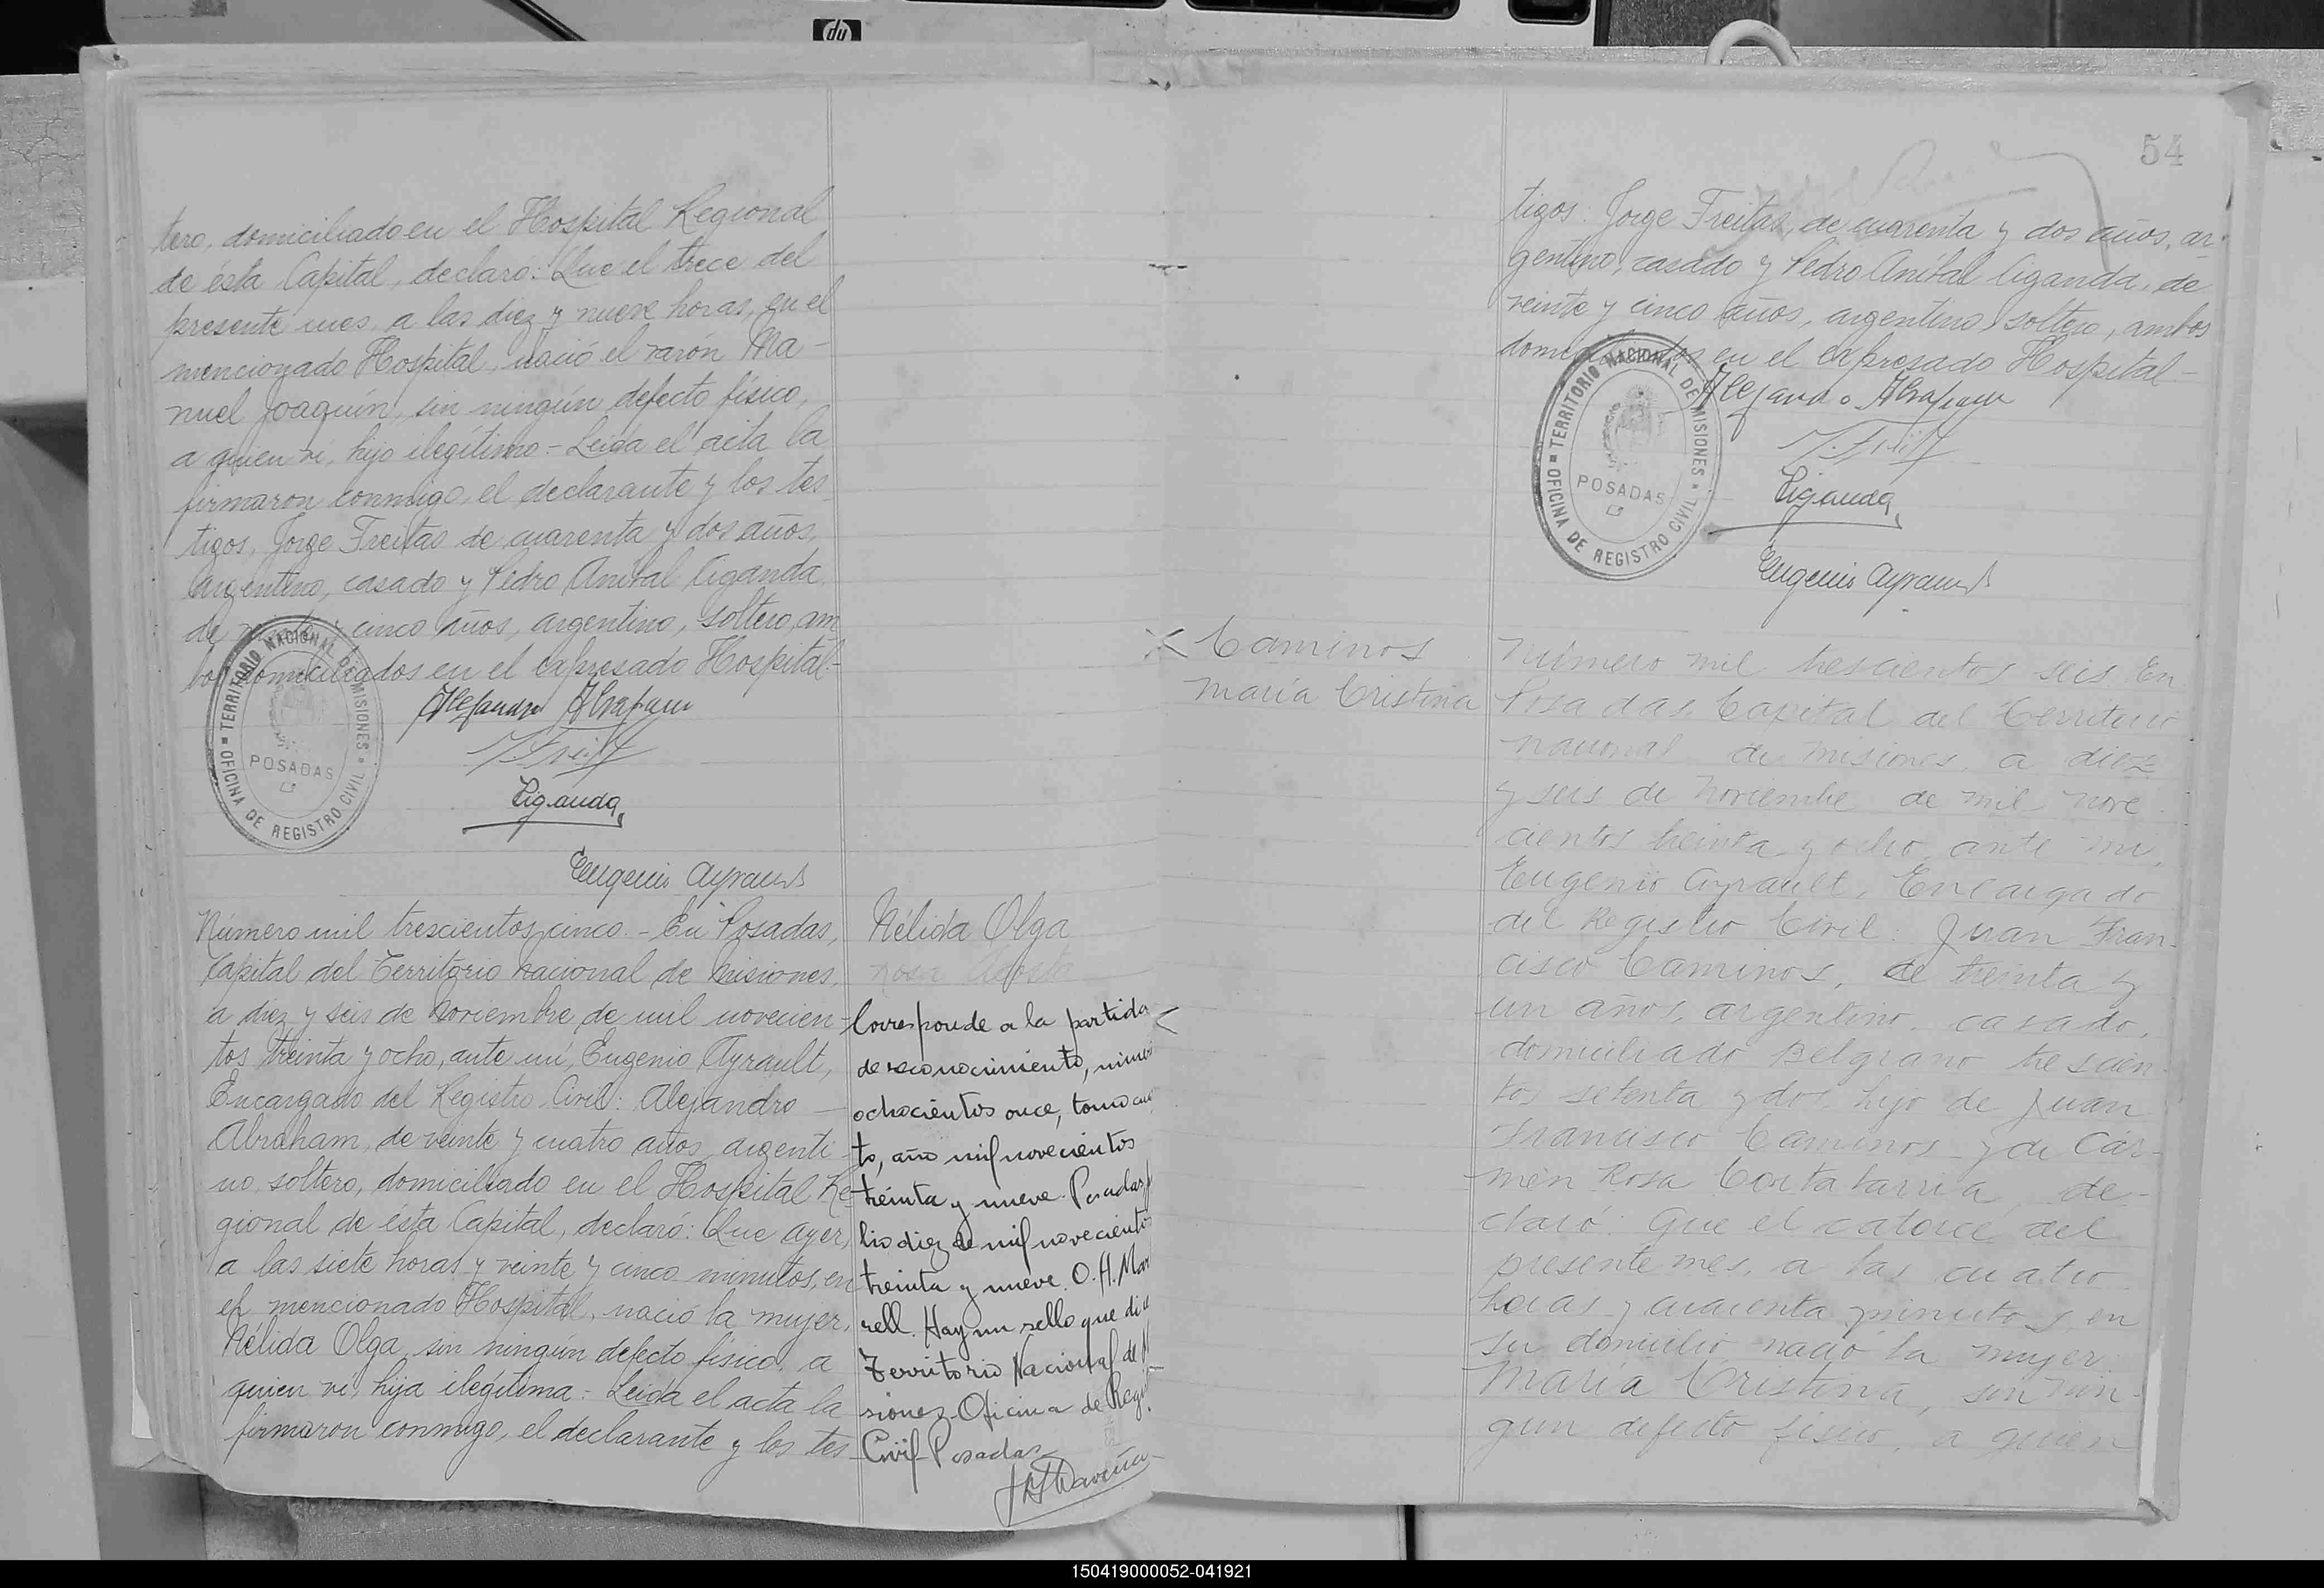 tero, domiciliado en el Hospital Regional
de ésta Capital, declaró: Que el trece del
presente mes, a las diez y nueve horas, en el
mencionado Hospital, nació el varón Ma-
nuel Joaquín, sin ningún defecto físico,
a quien ví, hijo ilegítimo - Leída el acta la
firmaron conmigo, el declarante y los tes
tigos, Jorge Freitas de cuarenta y dos años,
argentino, casado y Pedro Aníbal Ciganda
de veinte y cinco años, argentino, soltero, am
bos domiciliados en el expresado Hospital-
Alejandro Abraham
Ciganda
Eugenio Ayrault
TERRITORIO NACIONAL DE MISIONES
POSADAS
OFICINA DE REGISTRO CIVIL
Número mil trescientos cinco - En Posadas,
Capital del Territorio nacional de Misiones,
a diez y seis de Noviembre de mil novecien-
tos treinta y ocho, ante mí, Eugenio Ayrault,
Encargado del Registro Civil: Alejandro
Abraham, de veinte y cuatro años, argenti-
no, soltero, domiciliado en el Hospital Re-
gional de ésta Capital, declaró: Que ayer,
a las siete horas y veinte y cinco minutos, en
el mencionado Hospital, nació la mujer,
Nélida Olga, sin ningún defecto físico, a
quien ví, hija ilegítima - Leída el acta la
firmaron conmigo, el declarante y los tes
Nélida Olga
Rosa Acosta
Corresponde a la partida
de reconocimiento, núme
ochocientos once, tomo cua
to, año mil novecientos
treinta y nueve. Posadas, ju
lio diez de mil novecientos
treinta y nueve. O. H. Mar
rell. Hay un sello que dice
Territorio Nacional de M
siones-Oficina de Regis
Civil-Posadas
54
tigos: Jorge Freitas, de cuarenta y dos años, ar-
gentino, casado y Pedro Aníbal Ciganda, de
veinte y cinco años, argentino, soltero, ambos
domiciliados en el expresado Hospital-
Alejandro Abraham
Ciganda
Eugenio Ayrault
TERRITORIO NACIONAL DE MISIONES
POSADAS
OFICINA DE REGISTRO CIVIL
Caminos
María Cristina
Número mil trescientos seis En
Posadas, Capital del Territorio
nacional de Misiones, a diez
y seis de Noviembre de mil nove
cientos treinta y ocho, ante mi,
Eugenio Ayrault, Encargado
del Registro Civil: Juan Fran-
cisco Caminos, de treinta y
un años, argentino, casado,
domiciliado Belgrano trescien-
tos setenta y dos hijo de Juan
Francisco Caminos y de Cár-
men Rosa Cortabarria, de-
claró: Que el catorce del
presente mes, a las cuatro
horas y cuarenta minutos, en
su domicilio nació la mujer
María Cristina, sin nin-
gun defecto físico, a quien
150419000052-041921